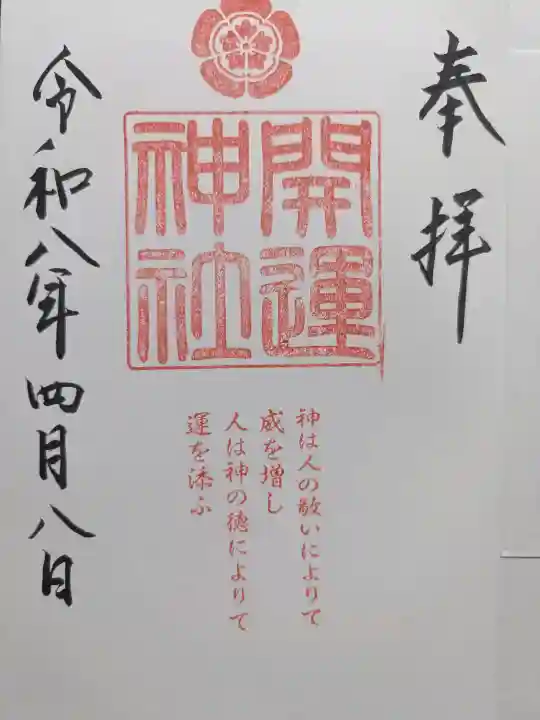 奉拝
開運
神社
神は人の敬いによりて
威を増し
人は神の徳によりて
運を添ふ
令和八年四月八日